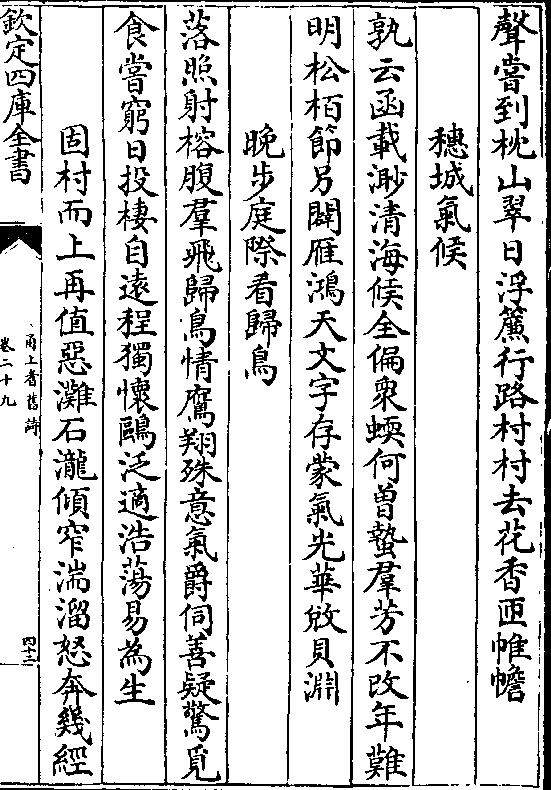 聲嘗到枕山翠日浮簾行路村村去花香匝帷幨
穗城氣候
孰云函載渺清海候全偏衆蝡何曾蟄羣芳不改年難
明松栢節另闢雁鴻天文字存蒙氣光華敓貝淵
晚步庭際看歸鳥
落照射榕腹羣飛歸鳥情鷹翔殊意氣爵伺善疑驚覓
食嘗窮日投棲自遠程獨懷鷗泛適浩蕩易為生
固村而上再值惡灘石瀧傾窄湍溜怒奔幾經
欽定四庫全書
甬上耆舊詩
卷二十九
四十三